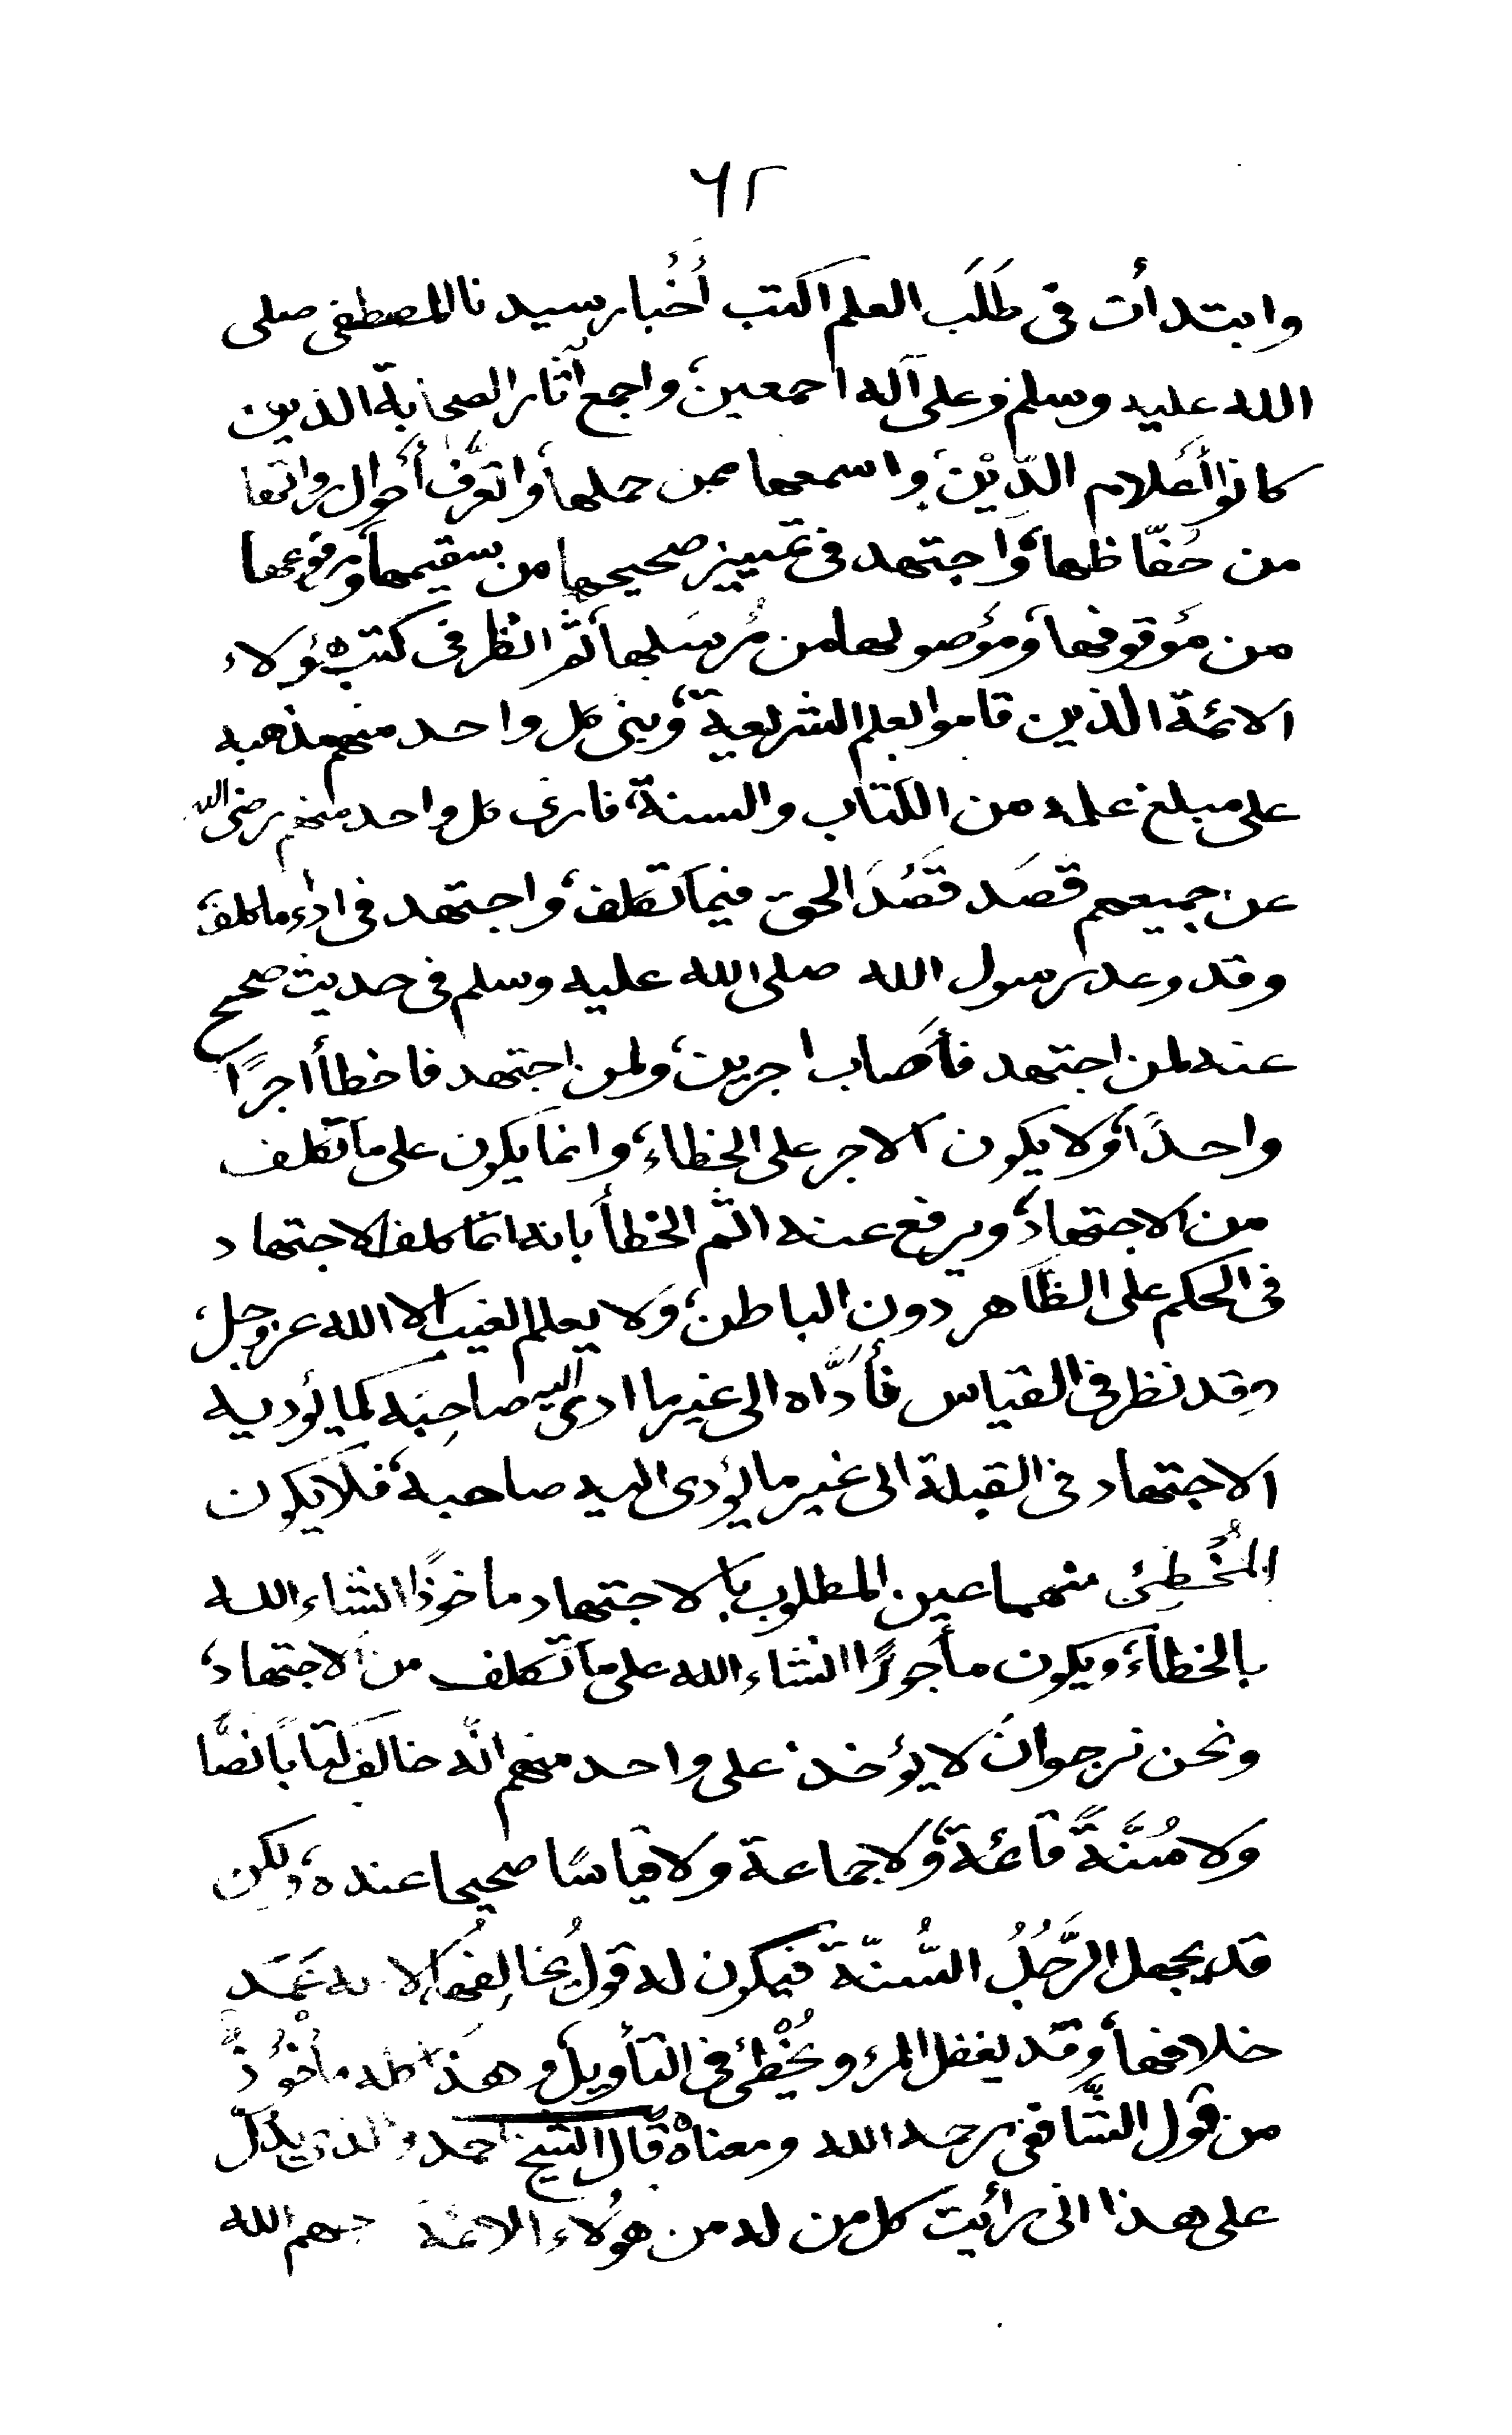 ٦٢
وابتدأت فى طَلَب العلم اكتب أخُبار سيدنا المصطفى صلى
الله عليه وسلم وعلى آله اجمعين، واجمع آثار الصحابة الذين
كانوا أعلام الدِّيْن، واسمعها ممن حملها، واتعرَّف أحوال رواتها
من حُفّاظها، واجتهد فى تمييز صحيحها من سقيمها، ومرفوعها
من مَوقوفها، ومَوصولها من مُرسَلها، ثم انظر فى كتب هؤلاء
الائمة الذين قاموا بعلم الشريعية، وبنى كل واحد منهم مذهبه
على مبلغ علمه من الكتاب والسنة، فارى كل واحد منهم رضى الله
عن جميعهم قصَد قَصُدَ الحق فيما تكلف، واجتهد فى اداء ما كلف،
وقد وعد رسول الله صلى الله عليه وسلم فى حديث صحيح
عنه لمن اجتهد فأصاب اجرين، ولمن اجتهد فاخطأ اجرًا
واحدًا، ولا يكون الاجر على الخطاء، وانما يكون على ما تكلف
من الاجتهاد، ويرفع عنه اثم الخطأ بانه انما كلف الاجتهاد
فى الحكم على الظاهر دون الباطن، ولا يعلم الغيب الا الله عز وجل،
وقد نظر فى القياس فأدَّاه الى غير ما ادى اليه صاحِبَه كما يؤديه
الاجتهاد فى القبلة الى غير ما يؤدى اليه صاحبه، فلا يكون
المُخُطِئ منهما عين المطلوب بالاجتهاد ماخوذًا انشاء الله
بالخطاء، ويكون مأجورًا انشاء الله على ما تكلف من الاجتهاد،
ونحن نرجوان لا يؤخذ على واحد منهم انّه خالف كتابًا نصًّا
ولا سُنَّةً قائمة، ولا جماعة ولا قياسًا صحيحا عنده، ولكن
قد يجهل الرَّجُلُ السُّنّة فيكون له قول يُخالِفُها، لا انه عَمَد
خلافها، وقد يغفل المرء ويُخْطِئ فى التأويل، وهذا كله مأخُوْذٌ
من قول الشَّافعى رحمه الله ومعناهُ قال الشيخ احمد والذى يدُلّ
على هذا انى رأيت كل من له من هؤلاء الائمة رحمهم الله